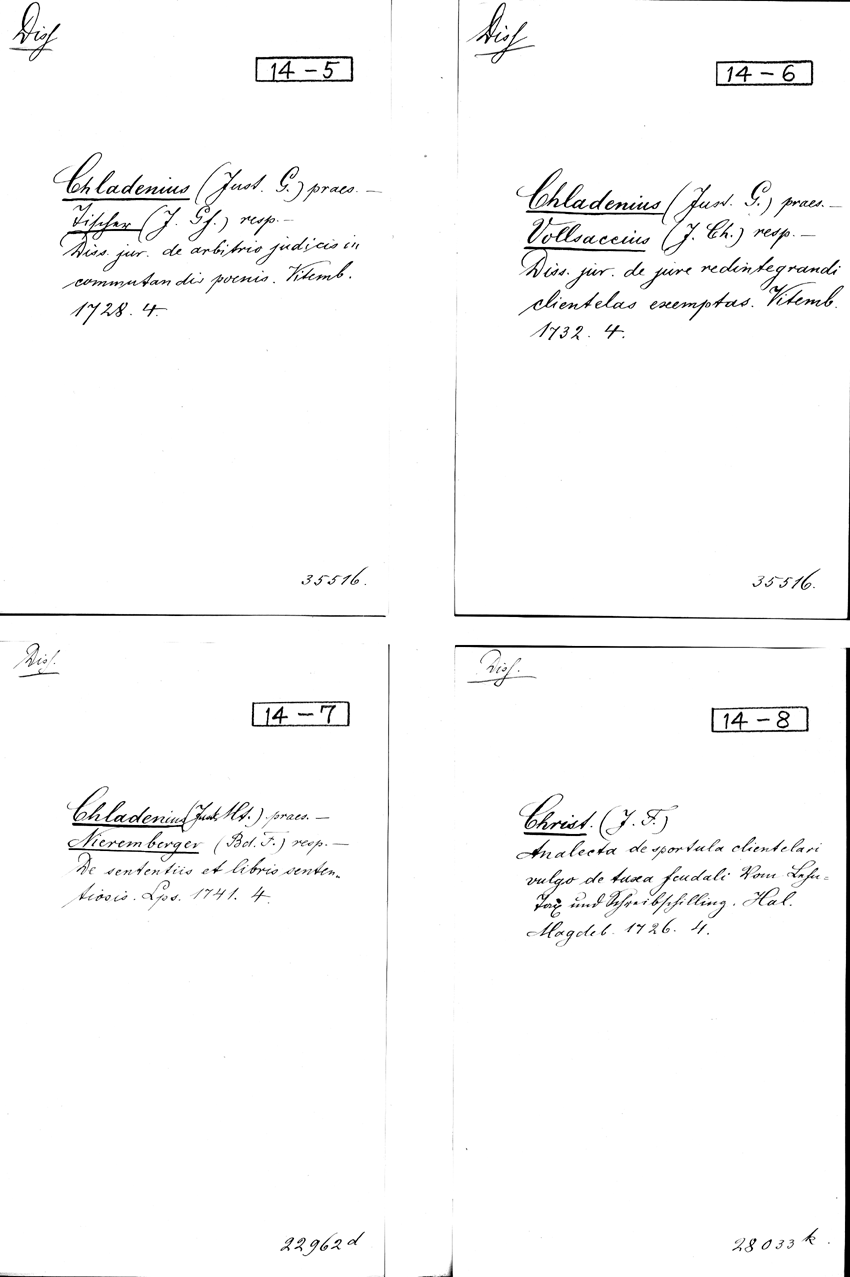 Diss
14 – 5
Chladenius (Just. G.) praes. —
Tischer (J. Gf.) resp. —
Diss. jur. de arbitrio judicis in
commutandis poenis. Vitemb.
1728. 4.
35516.
Diss
14 – 6
Chladenius (Just. G.) praes. —
Vollsaccius (J. Ch.) resp. —
Diss. jur. de jure redintegrandi
clientelas exemptas. Vitemb.
1732. 4.
35516.
Diss.
14 – 7
Chladenius (Just. Mt.) praes. —
Nieremberger (Bd. F.) resp. —
De sententiis et libris senten-
tiosis. Lps. 1741. 4.
22962 d
Diss.
14 – 8
Christ. (J. F.)
Analecta de sportula clientelari
vulgo de taxa feudali Vom Lehn=
Tax und Schreibschilling. Hal.
Magdeb. 1726. 4.
28033 k.